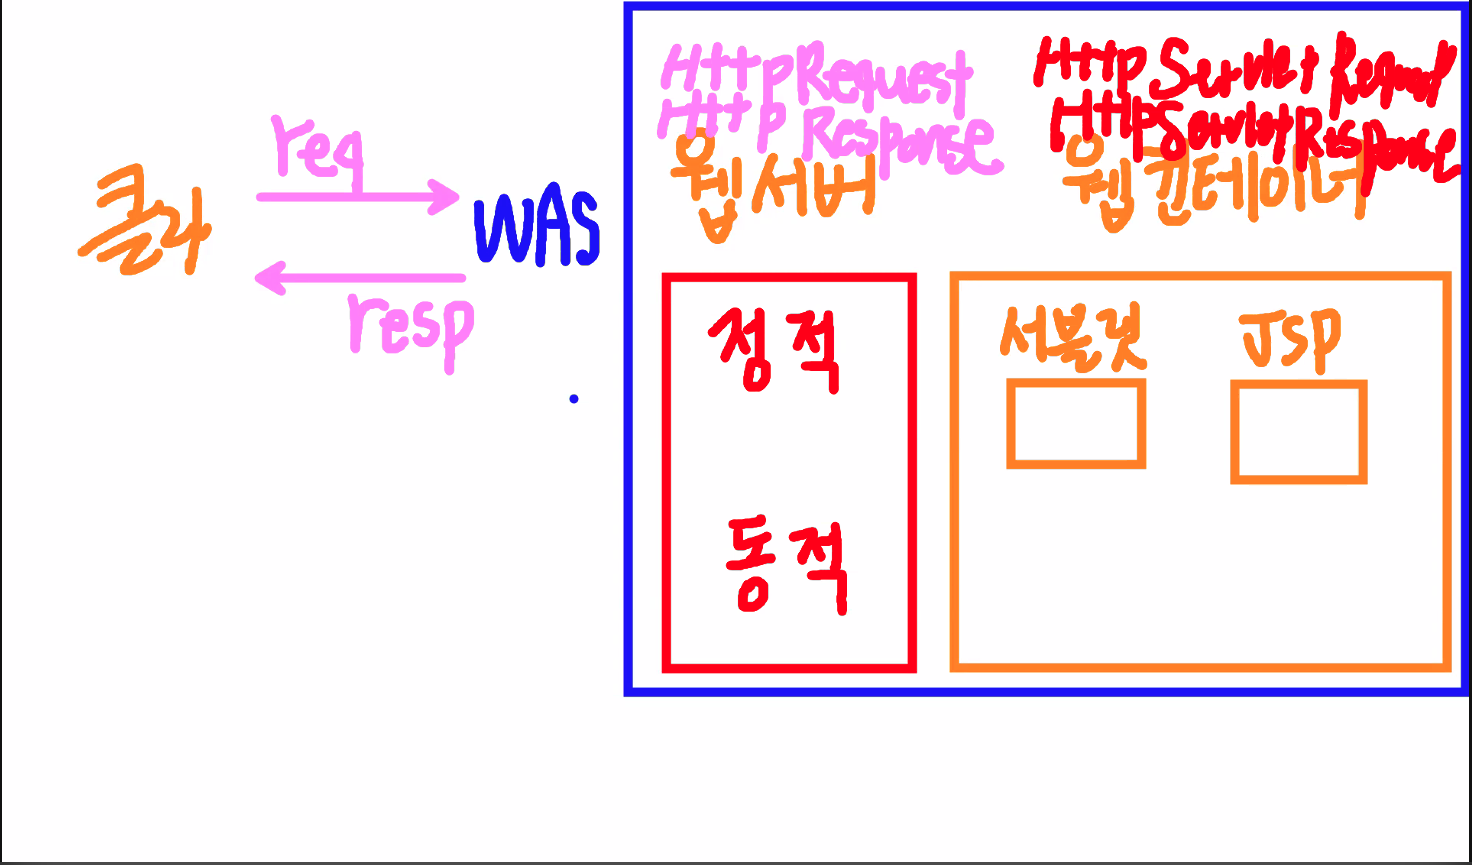 req
클라
WAS
resp
HttpRequest
HttpResponse
웹서버
정적
동적
HttpServletRequest
HttpServletResponse
웹컨테이너
서블릿
JSP